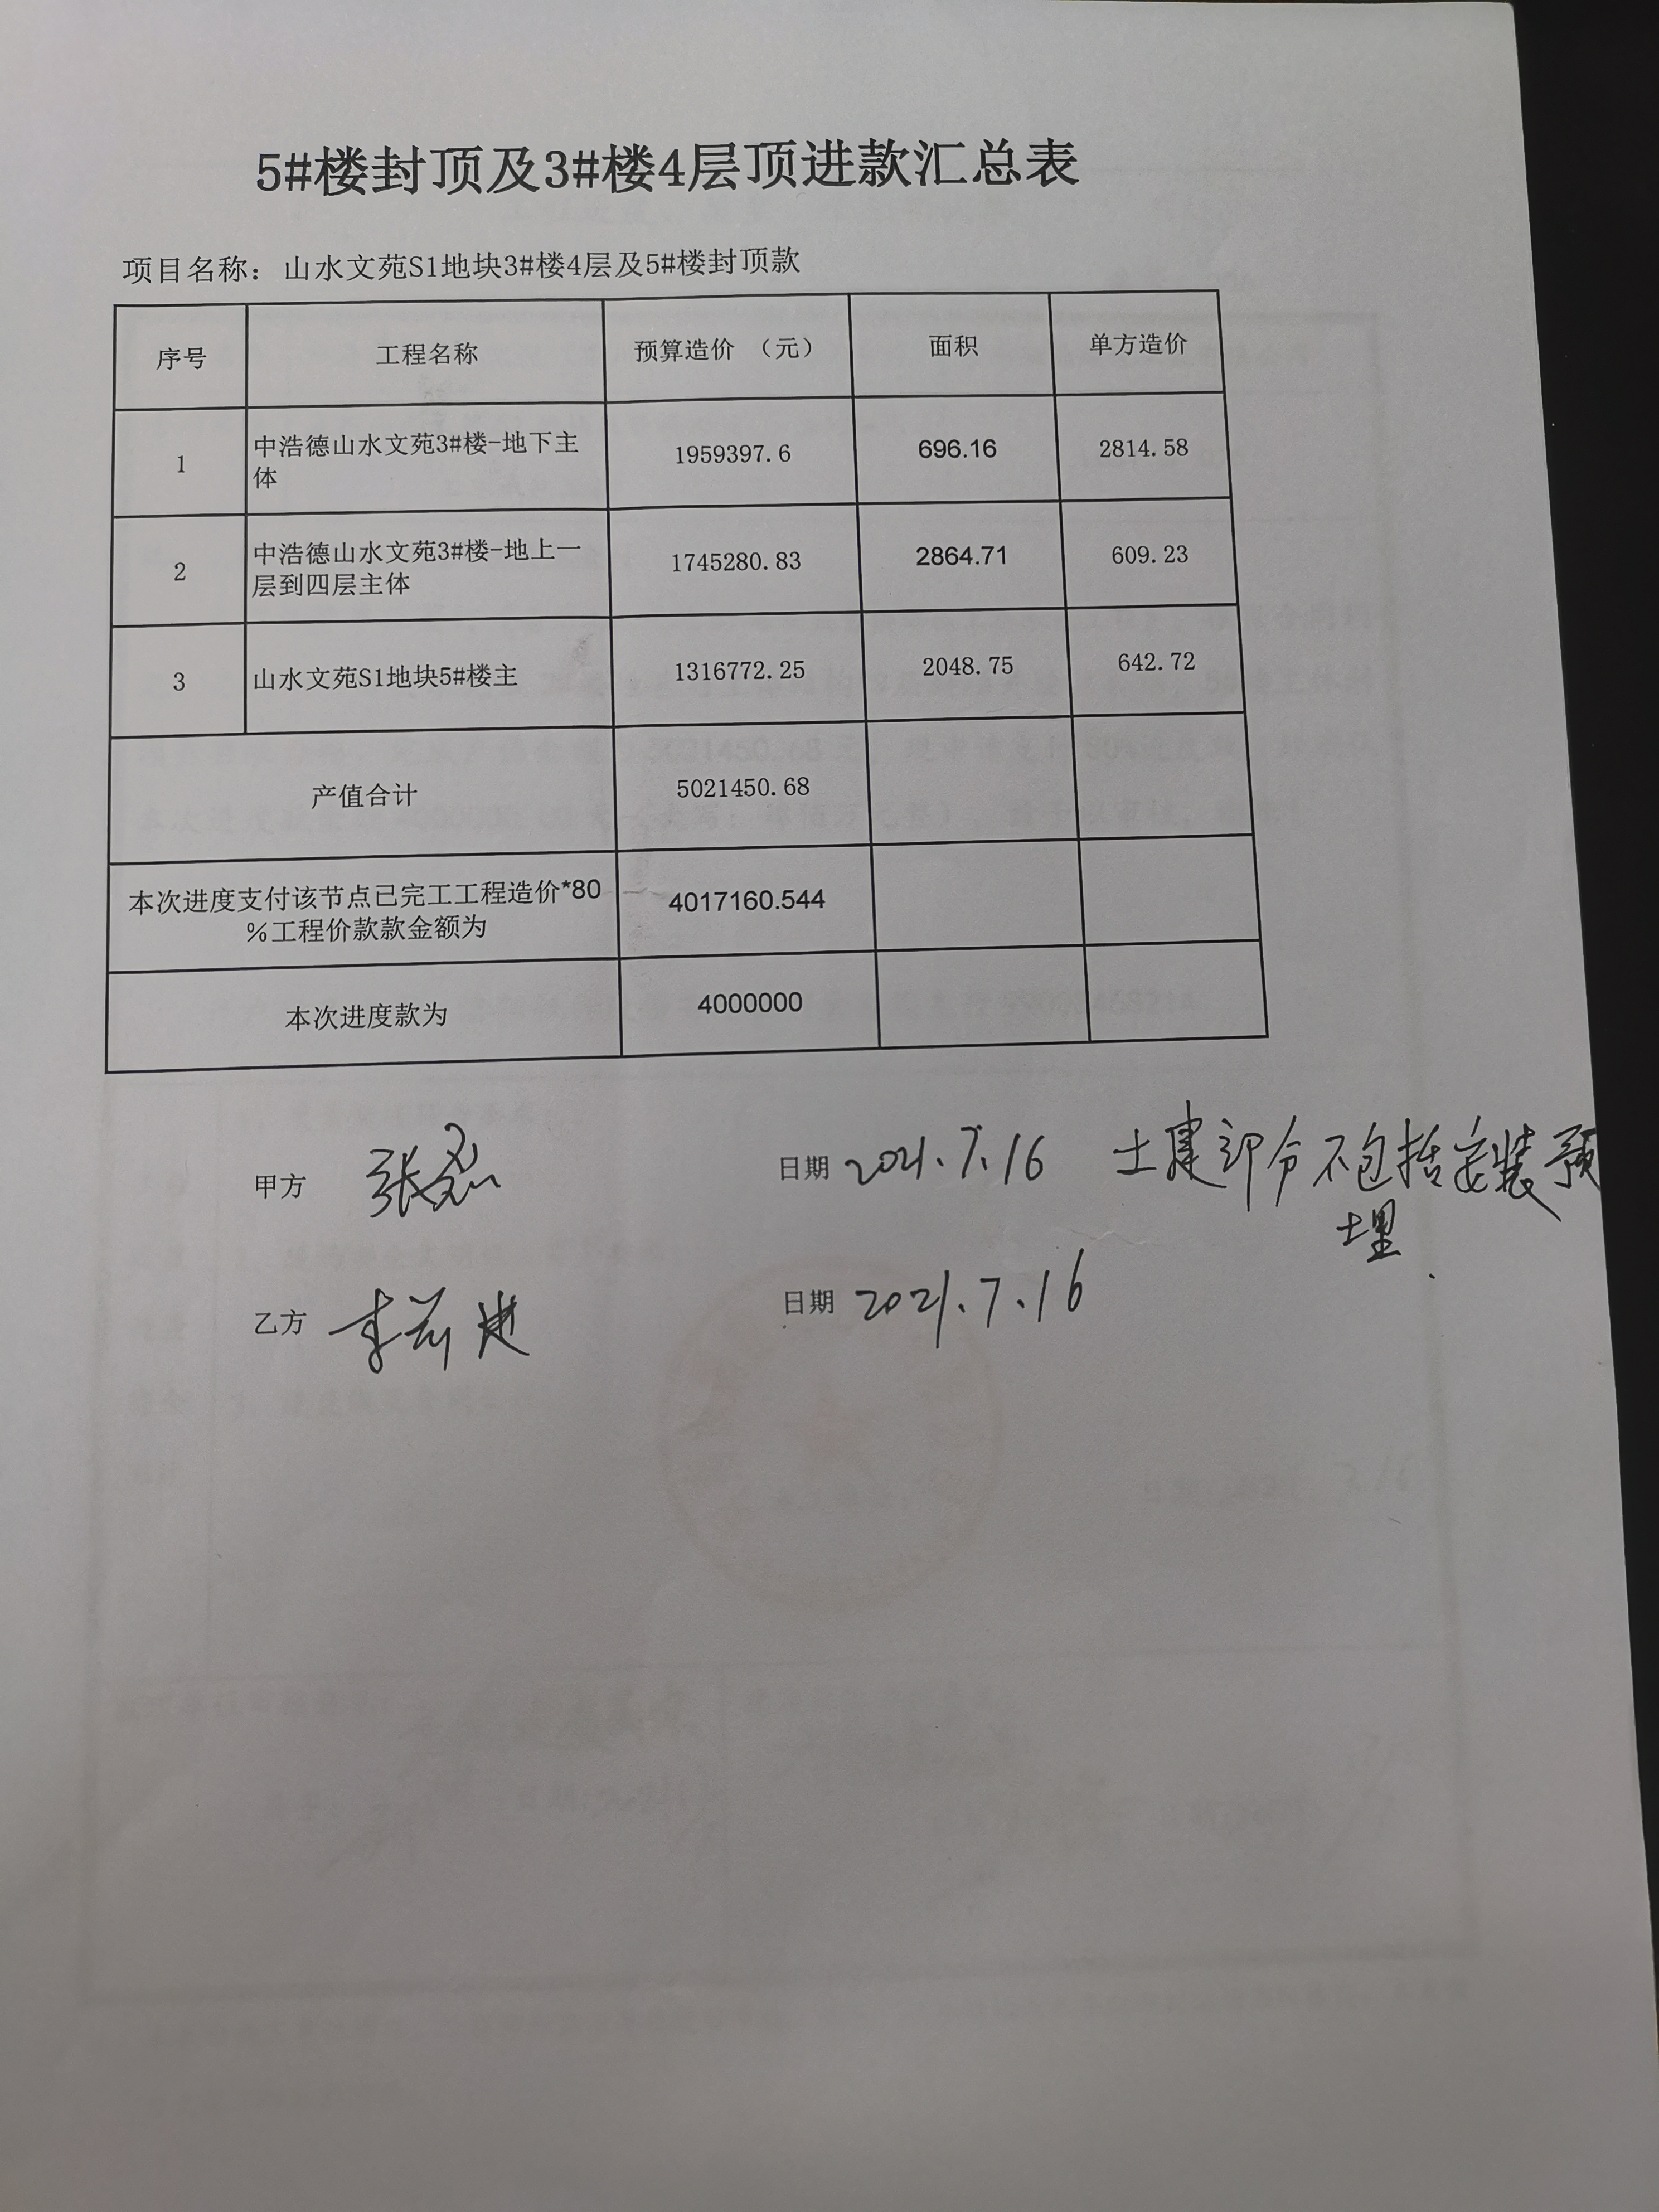 5#楼封顶及3#楼4层顶进款汇总表
项目名称：山水文苑S1地块3#楼4层及5#楼封顶款
序号 工程名称 预算造价 （元） 面积 单方造价
1 中浩德山水文苑3#楼-地下主
体 1959397.6 696.16 2814.58
2 中浩德山水文苑3#楼-地上一
层到四层主体 1745280.83 2864.71 609.23
3 山水文苑S1地块5#楼主 1316772.25 2048.75 642.72
产值合计 5021450.68
本次进度支付该节点已完工工程造价*80
%工程价款款金额为 4017160.544
本次进度款为 4000000
甲方 张 日期 2021.7.16 土建部分不包括安装预
埋.
乙方 李 进 日期 2021.7.16